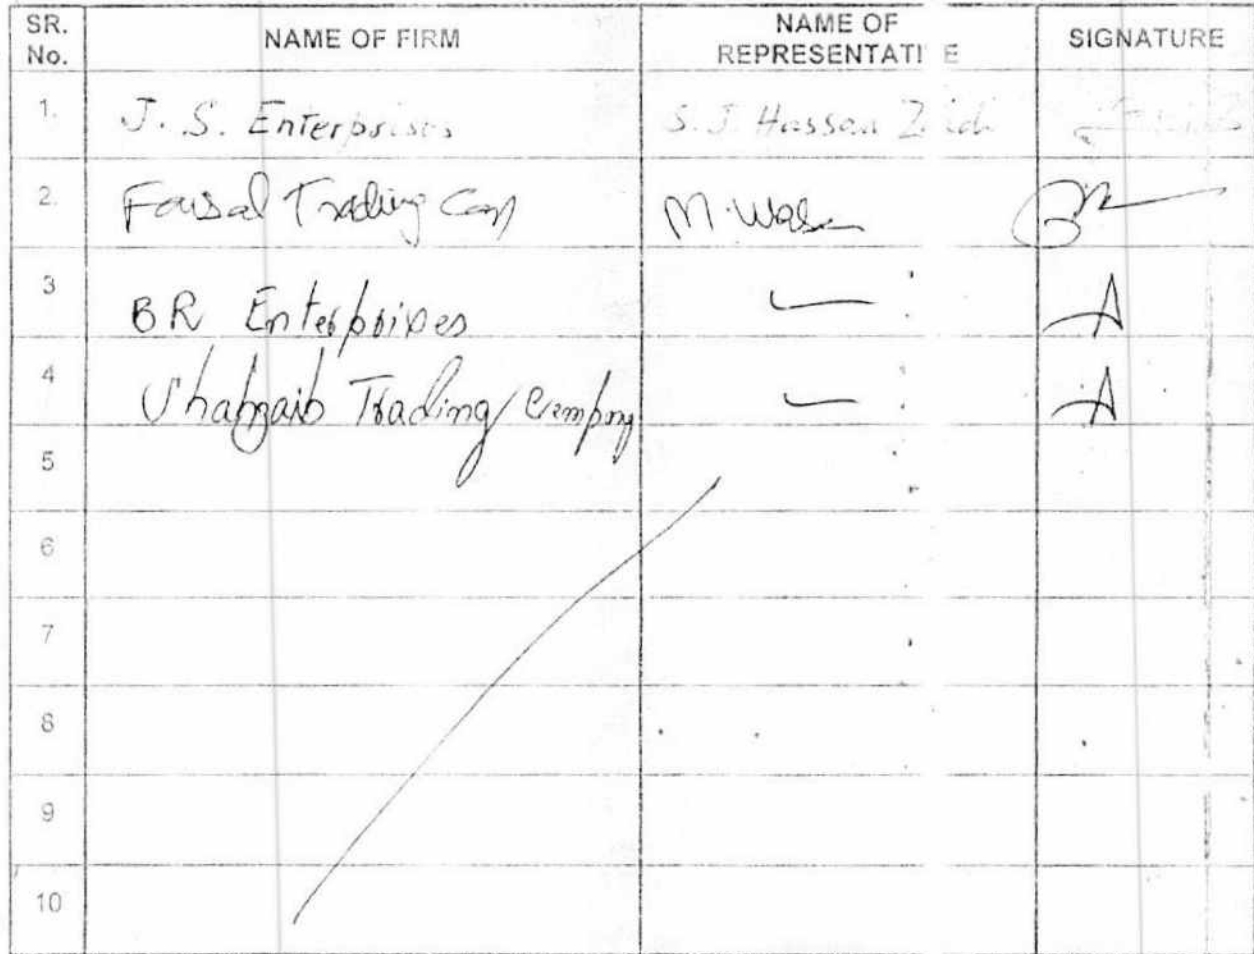 SR. No. NAME OF FIRM NAME OF REPRESENTATI E SIGNATURE
1. J. S. Enterprises S. J. Hassan
2. Faisal Trading M.
3 BR Enterprises
4 Shahzaib Trading Company
5
6
7
8
9
10